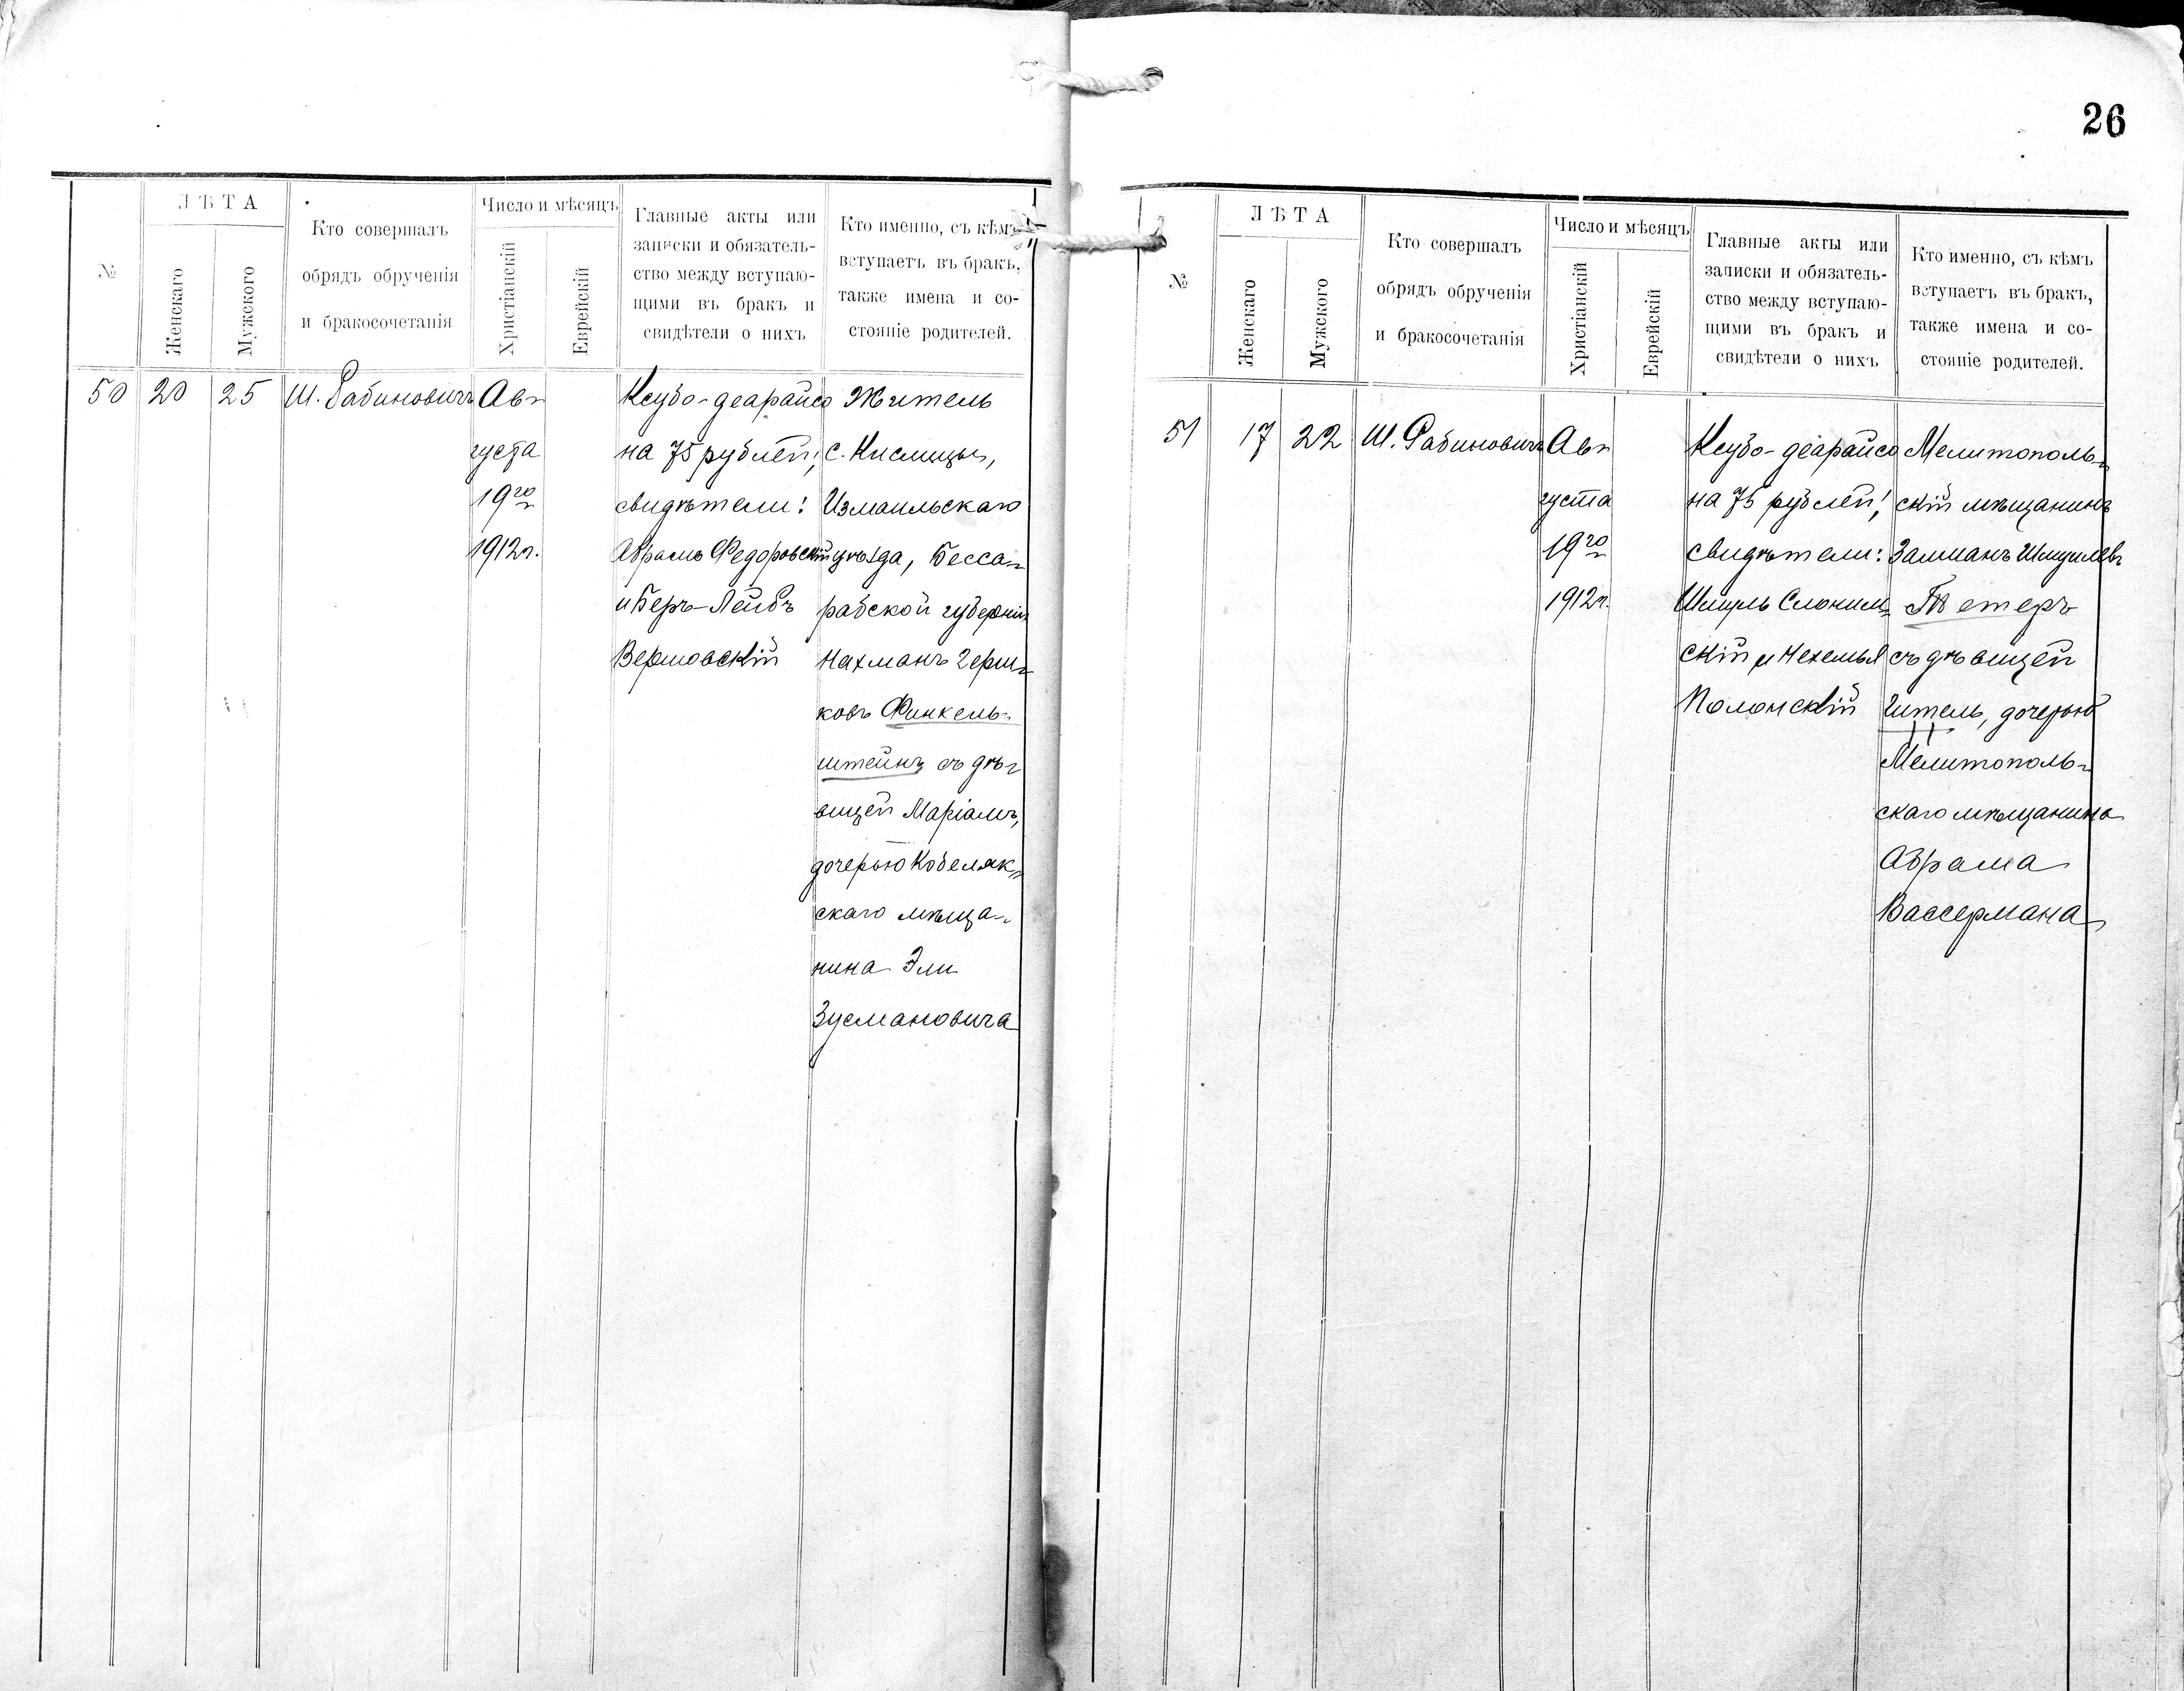 26
№
ЛѢТА
Женскаго
Мужского
Кто совершалъ
обрядъ обрученія
и бракосочетанія
Число и мѣсяцъ
Христіанскій
Еврейскій
Главные акты или
записки и обязатель-
ство между вступаю-
щими въ бракъ и
свидѣтели о нихъ
Кто именно, съ кѣмъ
вступаетъ въ бракъ,
также имена и со-
стояніе родителей.
50
20
25
Ш. Рабиновичъ
Ав-
густа
19го
1912г.
Ксубо-деарайсо
на 75 рублей;
свидѣтели:
Абрамъ Федоровскій
и Беръ-Лейбъ
Вершовскій
Житель
с. Кислицы,
Измаильскаго
уѣзда, Бесса-
рабской губерніи
Нахманъ Герш-
ковъ Финкель-
штейнъ съ дѣ-
вицей Маріамъ,
дочерью Кобеляк-
скаго мѣща-
нина Эли
Зусмановича
№
ЛѢТА
Женскаго
Мужского
Кто совершалъ
обрядъ обрученія
и бракосочетанія
Число и мѣсяцъ
Христіанскій
Еврейскій
Главные акты или
записки и обязатель-
ство между вступаю-
щими въ бракъ и
свидѣтели о нихъ
Кто именно, съ кѣмъ
вступаетъ въ бракъ,
также имена и со-
стояніе родителей.
51
17
22
Ш. Рабиновичъ
Ав-
густа
19го
1912г.
Ксубо-деарайсо
на 75 рублей;
свидѣтели:
Шмуль Слоним-
скій и Нехемья
Полонскій
Мелитополь-
скій мѣщанинъ
Залманъ Шмулевъ
Тетеръ
съ дѣвицей
Гитель, дочерью
Мелитополь-
скаго мѣщанина
Абрама
Вассермана